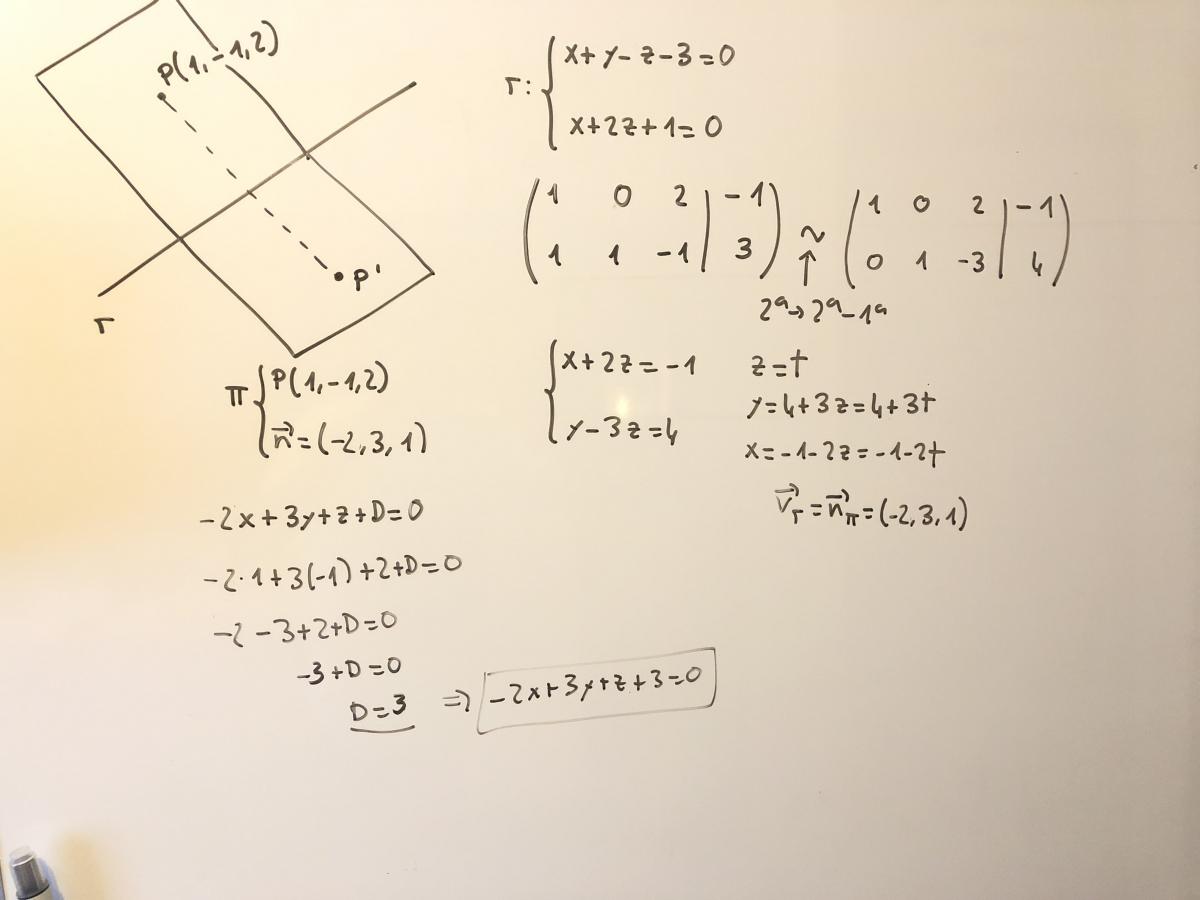 P(1,-1,2)
P'
r
r: { x+y-z-3=0
x+2z+1=0
( 1 0 2 | -1 ) ~ ( 1 0 2 | -1 )
( 1 1 -1 | 3 ) ↑ ( 0 1 -3 | 4 )
2ª→2ª-1ª
π { P(1,-1,2)
n⃗=(-2,3,1)
{ x+2z=-1
y-3z=4
z=t
y=4+3z=4+3t
x=-1-2z=-1-2t
v⃗r=n⃗π=(-2,3,1)
-2x+3y+z+D=0
-2·1+3(-1)+2+D=0
-2-3+2+D=0
-3+D=0
D=3 ⇒ -2x+3y+z+3=0